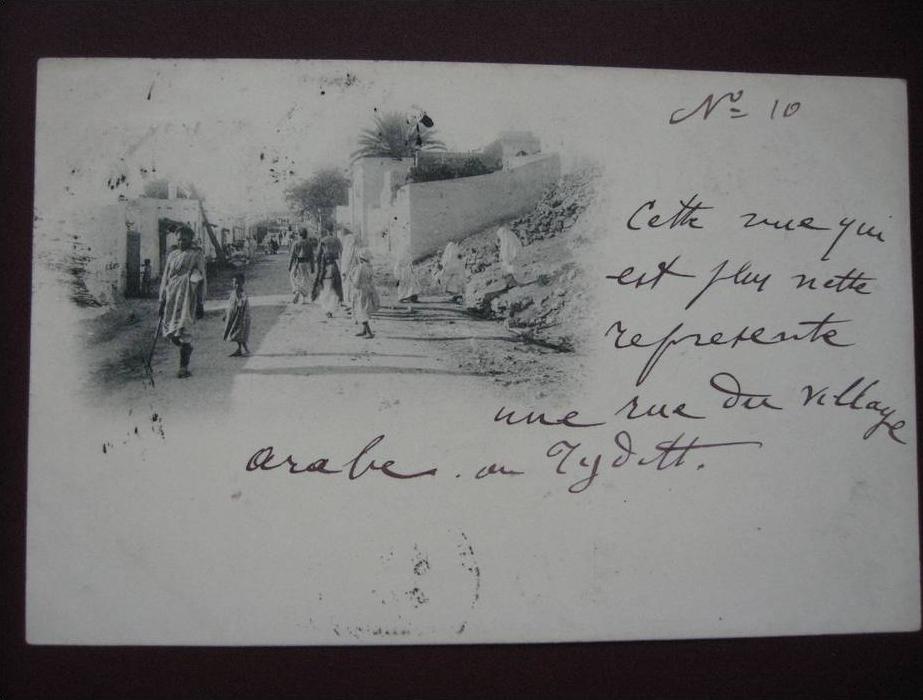 No 10
Cette vue qui
est plus nette
represente
une rue du village
arabe. ou Tyditt.